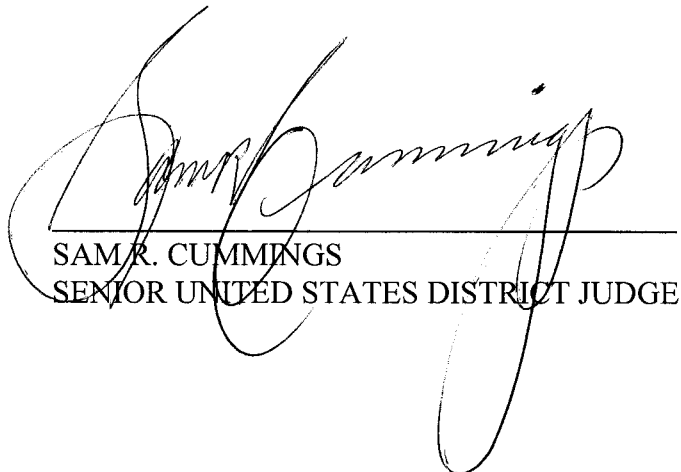 Sam R Cummings
SAM R. CUMMINGS
SENIOR UNITED STATES DISTRICT JUDGE